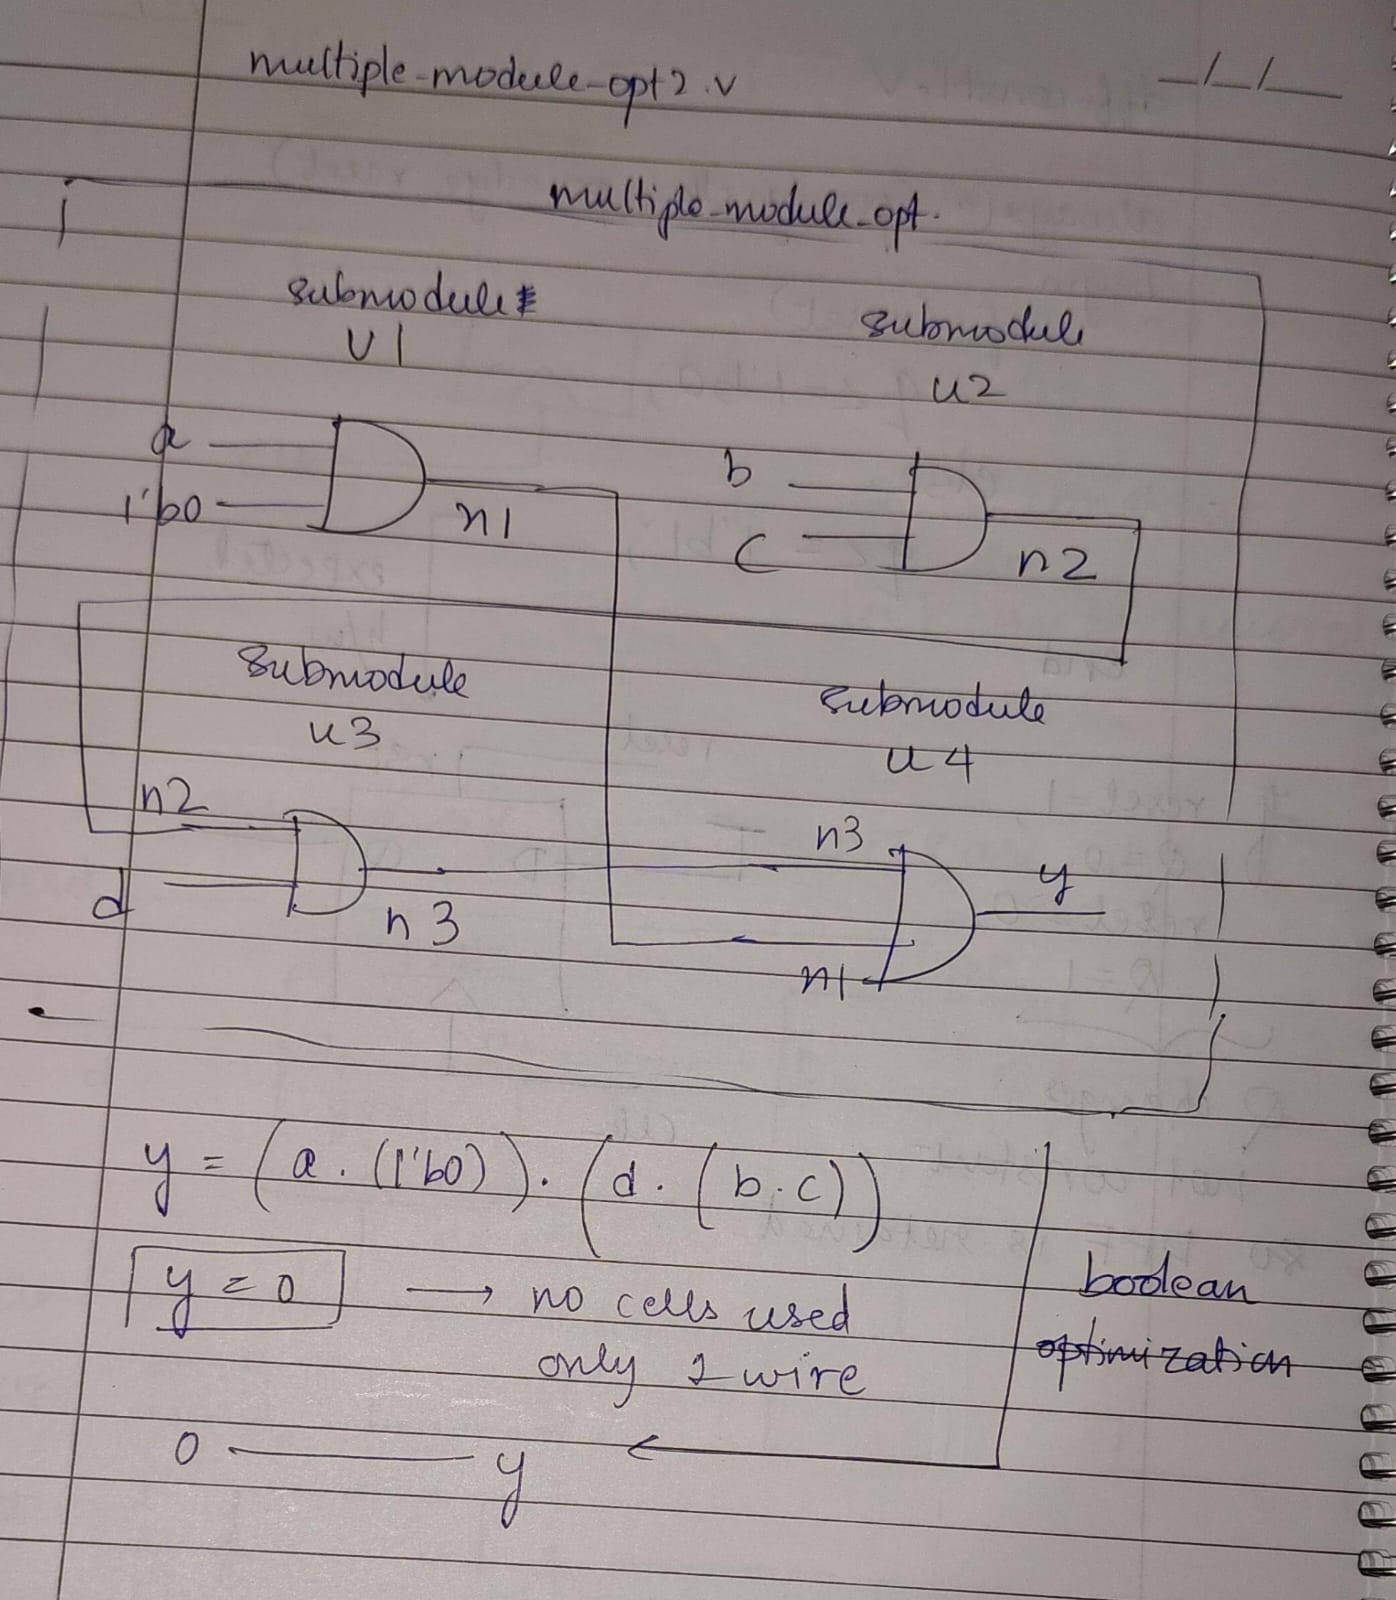 multiple_module_opt2.v
_/_/_
multiple_module_opt.
submodule
U1
submodule
u2
a
1'b0
n1
b
c
n2
submodule
u3
submodule
u4
n2
d
n3
n3
n1
y
y = (a.(1'b0)).(d.(b.c))
y = 0 → no cells used
only 1 wire
boolean
optimization
0 — y